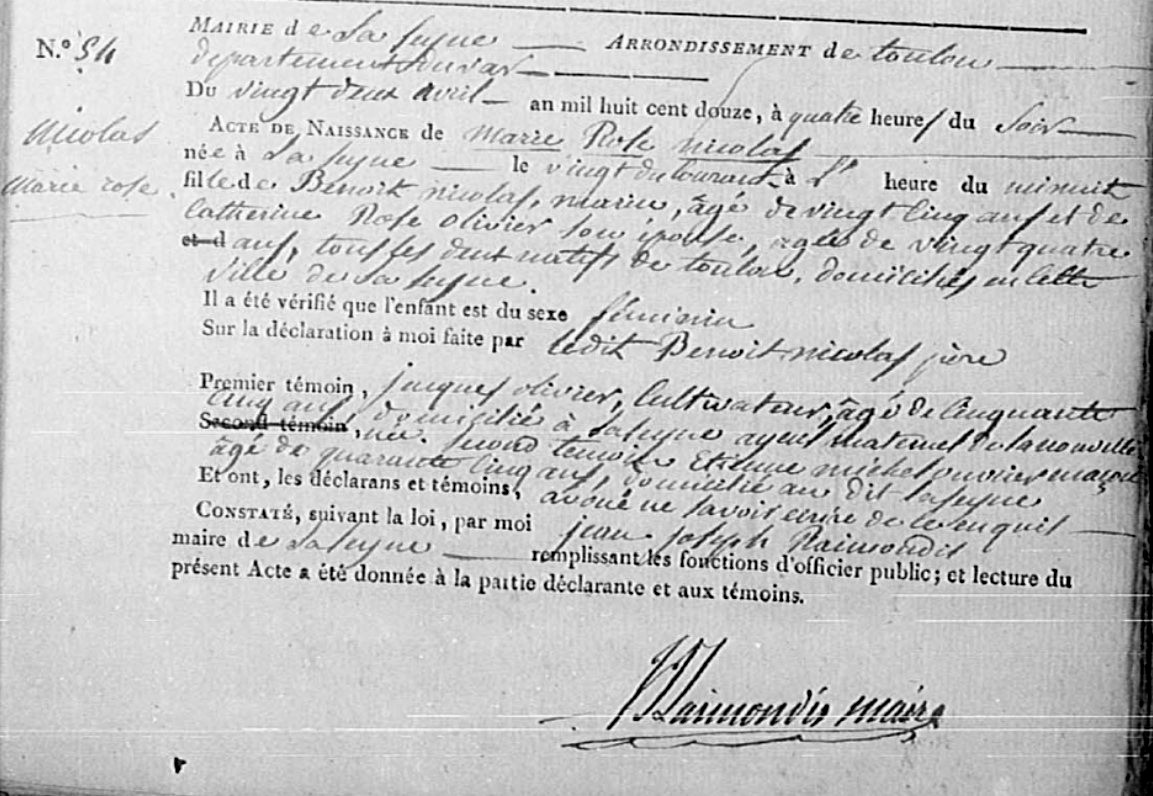 MAIRIE de La Seyne ARRONDISSEMENT de toulon
N.º 54
departement du var
Du vingt deux avril an mil huit cent douze, à quatre heures du Soir
Nicolas
ACTE DE NAISSANCE de Marie Rose nicolas
née à La Seyne le vingt du Courant à heure du minuit
Marie rose
fille de Benoit nicolas, marin, âgé de vingt Cinq ans et de
Catherine Rose olivier son épouse, agée de vingt quatre
et d ans, tous les deux natifs de toulon, domiciliés en cette
ville de La Seyne.
Il a été vérifié que l'enfant est du sexe féminin
Sur la déclaration à moi faite par ledit Benoit nicolas père
Premier témoin, jacques olivier, Cultivateur, âgé de Cinquante
Cinq ans, domicilié à La Seyne ayeul maternel de la nouvelle
Second témoin, née. Second temoin Etienne michel ouvrier maçon
âgé de quarante Cinq ans, domicilié au dit La Seyne
Et ont, les déclarans et témoins, avoué ne savoir écrire de ce enquis
CONSTATÉ, suivant la loi, par moi jean Joseph Raimondis
maire de La Seyne remplissant les fonctions d'officier public; et lecture du
présent Acte a été donnée à la partie déclarante et aux témoins.
Raimondis maire